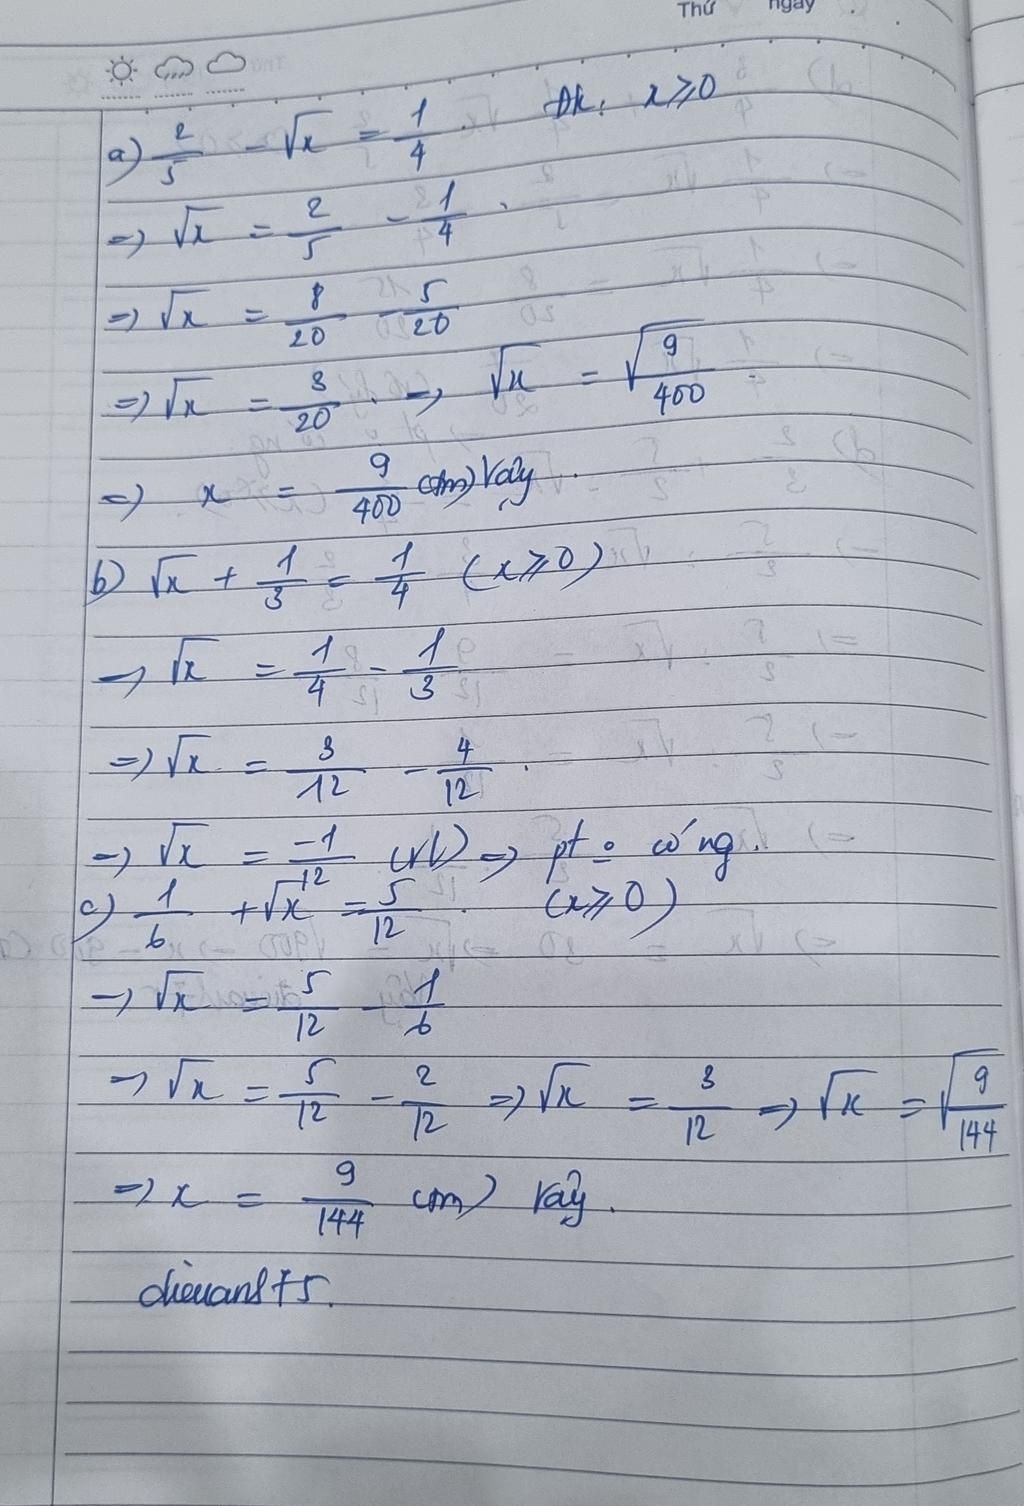 Thứ ngày
a) 2/5 - √x = 1/4. ĐK: x ≥ 0
=> √x = 2/5 - 1/4.
=> √x = 8/20 - 5/20
=> √x = 3/20. => √x = √(9/400)
=> x = 9/400 (tm) Vậy.
b) √x + 1/3 = 1/4 (x ≥ 0)
=> √x = 1/4 - 1/3
=> √x = 3/12 - 4/12.
=> √x = -1/12 (vl) => pt o có ng.
c) 1/6 + √x = 5/12. (x ≥ 0)
=> √x = 5/12 - 1/6
=> √x = 5/12 - 2/12 => √x = 3/12 => √x = √(9/144)
=> x = 9/144 (tm) Vậy.